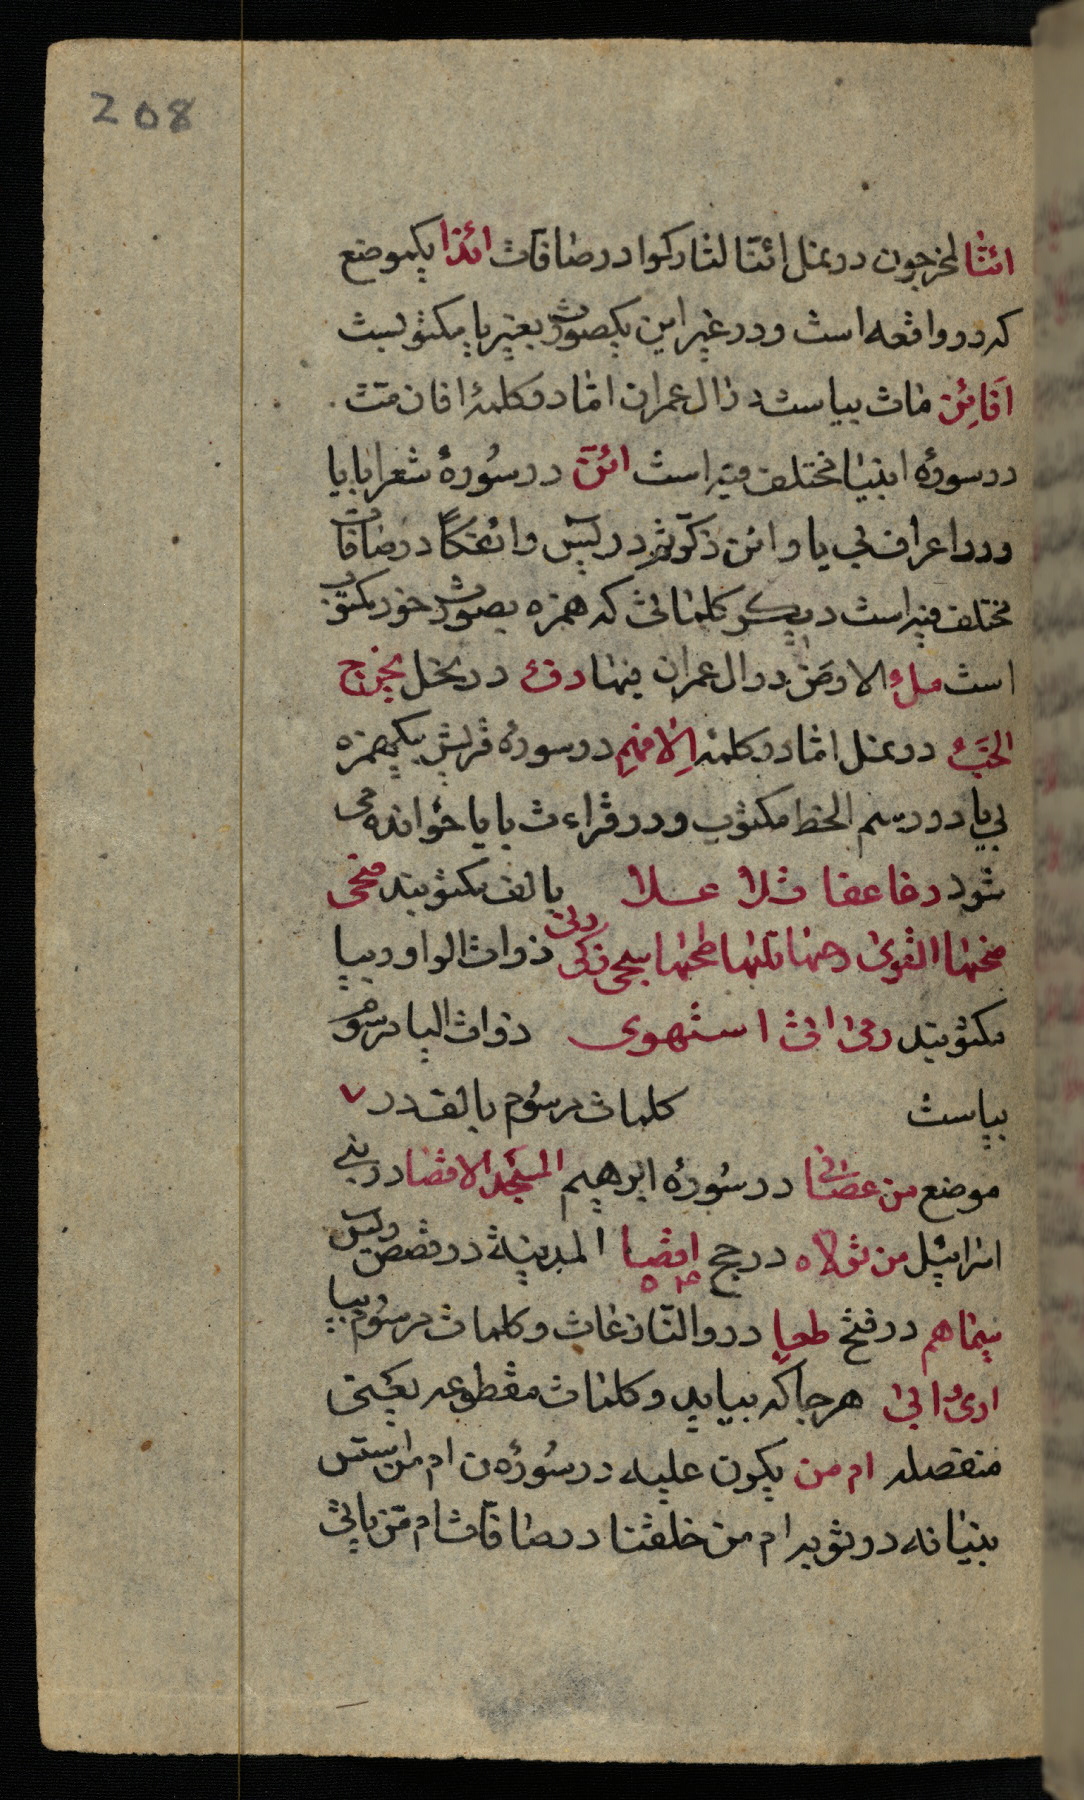 208
ائنا لمخرجون در نمل ائنا لتارکوا در صافات ائذا یکموضع
که در واقعه است و در غیر این یکصورت بغیر یا مکتوبست
افائن مات بیاست در ال عمران اما در کلمهٔ افان مت
در سورهٔ انبیا مختلف فیه است ائن در سُورهٔ شعرا بایا
و در اعراف بی یا و ائن ذکرتم در یس و ائفکا در صافات
مختلف فیه است دیگر کلماتی که همزه بصورت خود مکتوب
است ملء الارض در ال عمران فیها دفء در نحل یخرج
الخبء در نمل اما در کلمه الافهم در سورهٔ قریش بیکهمزه
بی یا در رسم الخط مکتوب و در قراءت بایا خوانده می
شود دعا عفا خلا علا بالف مکتوبند ضحی
ضحیها القوی دحیها تلیها طحیها سجی زکی ذوات الواو و بیا
مکتوبند رمی اتی استهوی ذوات الیا مرسوم
بیاست کلمات مرسوم بالف در ۷
موضع من عصانی در سُورهٔ ابرهیم المسجد الاقصا در بنی
اسرائیل من تولاه در حج اقصا المدینة در قصص و یس
سیماهم در فتح طغا در والنازعات و کلمات مرسوم بیا
هرجا که بیاید و کلمات مقطوعه یعنی
منفصله ام من یکون علیه در سُورهٔ ن ام من اسس
بنیانه در توبه ام من خلقنا در صافات ام من یاتی